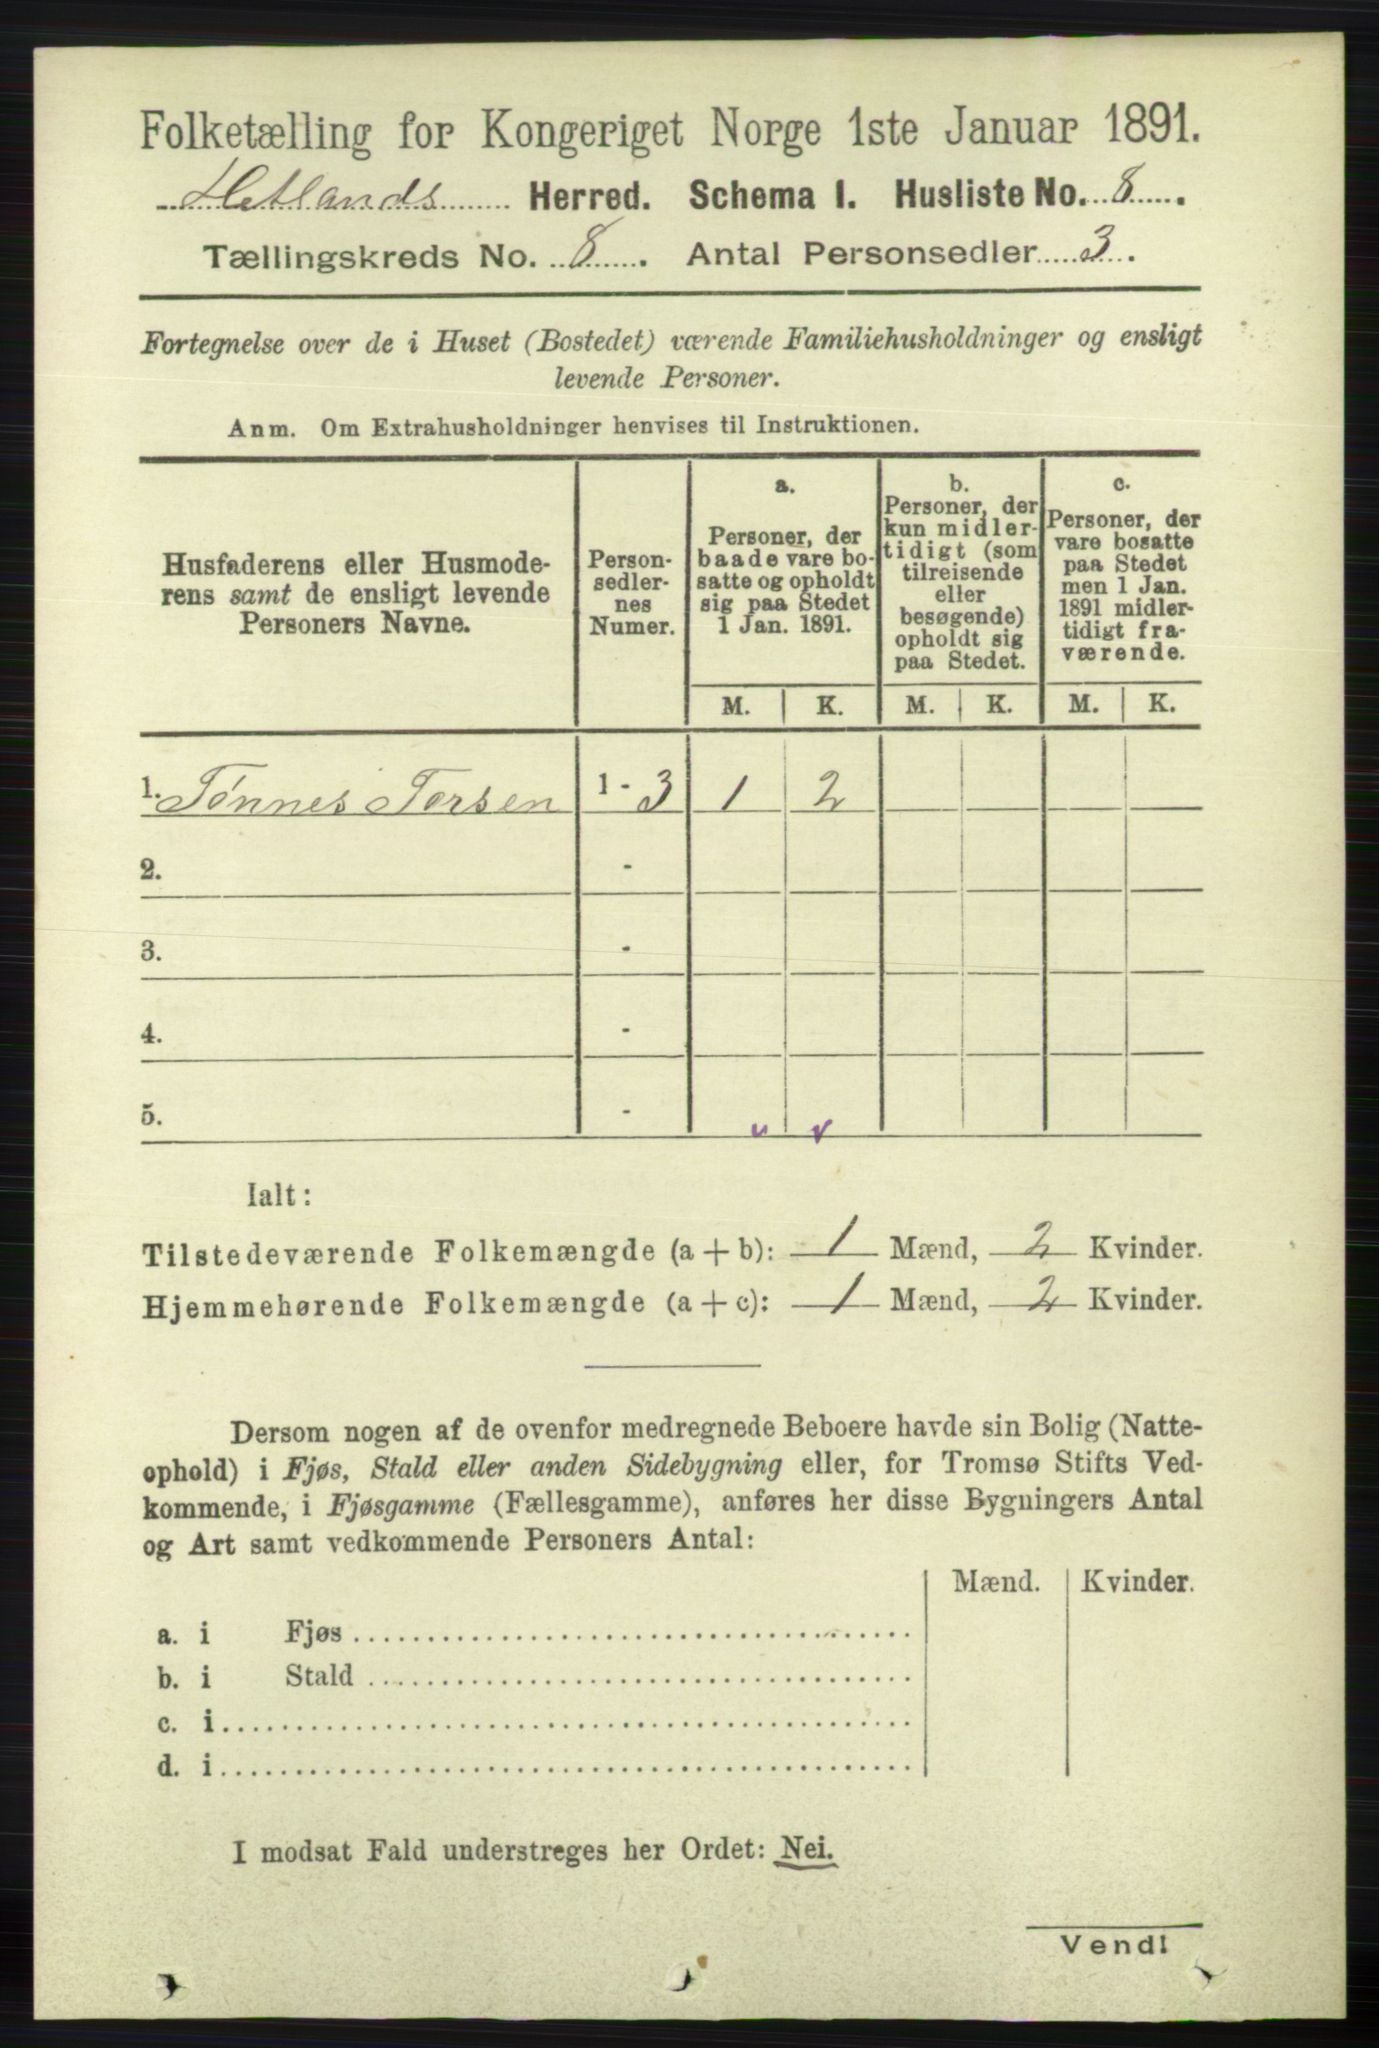 Folketælling for Kongeriget Norge 1ste Januar 1891.
Hetlands Herred. Schema I. Husliste No. 8.
Tællingskreds No. 8. Antal Personsedler 3.
Fortegnelse over de i Huset (Bostedet) værende Familiehusholdninger og ensligt
levende Personer.
Anm. Om Extrahusholdninger henvises til Instruktionen.
Husfaderens eller Husmode-
rens samt de ensligt levende
Personers Navne.
Person-
sedler-
nes
Numer.
a.
Personer, der
baade vare bo-
satte og opholdt
sig paa Stedet
1 Jan. 1891.
b.
Personer, der
kun midler-
tidigt (som
tilreisende
eller
besøgende)
opholdt sig
paa Stedet.
c.
Personer, der
vare bosatte
paa Stedet
men 1 Jan.
1891 midler-
tidigt fra-
værende.
M. K. M. K. M. K.
1. Tønnes Torsen 1 - 3 1 2
2. -
3. -
4. -
5. -
Ialt:
Tilstedeværende Folkemængde (a + b): 1 Mænd, 2 Kvinder.
Hjemmehørende Folkemængde (a + c): 1 Mænd, 2 Kvinder.
Dersom nogen af de ovenfor medregnede Beboere havde sin Bolig (Natte-
ophold) i Fjøs, Stald eller anden Sidebygning eller, for Tromsø Stifts Ved-
kommende, i Fjøsgamme (Fællesgamme), anføres her disse Bygningers Antal
og Art samt vedkommende Personers Antal:
Mænd. Kvinder.
a. i Fjøs
b. i Stald
c. i
d. i
I modsat Fald understreges her Ordet: Nei.
Vend!